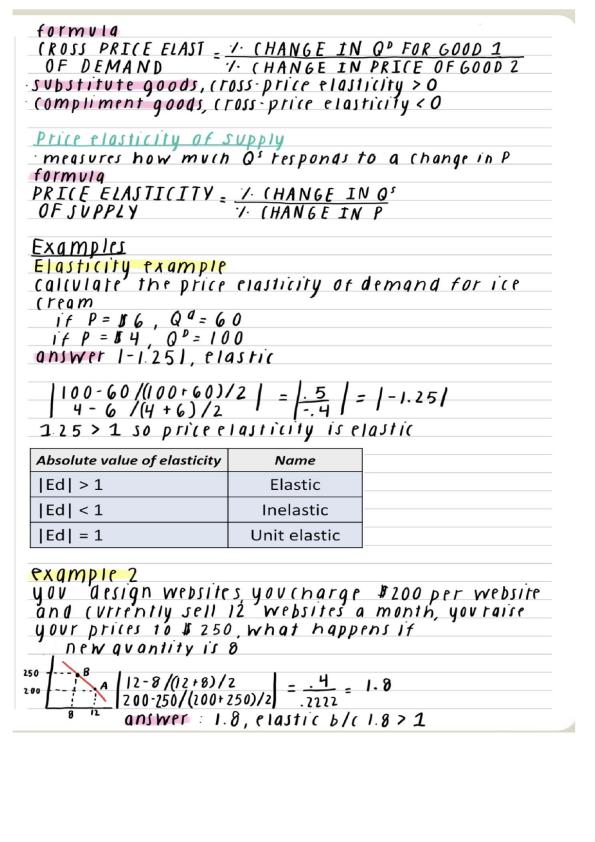 formula
CROSS PRICE ELAST = % CHANGE IN Qᴰ FOR GOOD 1
OF DEMAND % CHANGE IN PRICE OF GOOD 2
· substitute goods, cross-price elasticity > 0
· compliment goods, cross-price elasticity < 0
Price elasticity of supply
· measures how much Qˢ responds to a change in P
formula
PRICE ELASTICITY = % CHANGE IN Qˢ
OF SUPPLY % CHANGE IN P
Examples
Elasticity example
calculate the price elasticity of demand for ice
cream
if P = $6, Qᵈ = 60
if P = $4, Qᴰ = 100
answer |-1.25|, elastic
|100-60 /(100+60)/2 | = | .5 | = |-1.25|
4 - 6 /(4 + 6)/2 -.4
1.25 > 1 so price elasticity is elastic
Absolute value of elasticity Name
|Ed| > 1 Elastic
|Ed| < 1 Inelastic
|Ed| = 1 Unit elastic
example 2
you design websites, you charge $200 per website
and currently sell 12 websites a month, you raise
your prices to $250, what happens if
new quantity is 8
250 B
200 A
8 12
|12-8/(12+8)/2 | = .4 = 1.8
|200-250/(200+250)/2| .2222
answer : 1.8, elastic b/c 1.8 > 1